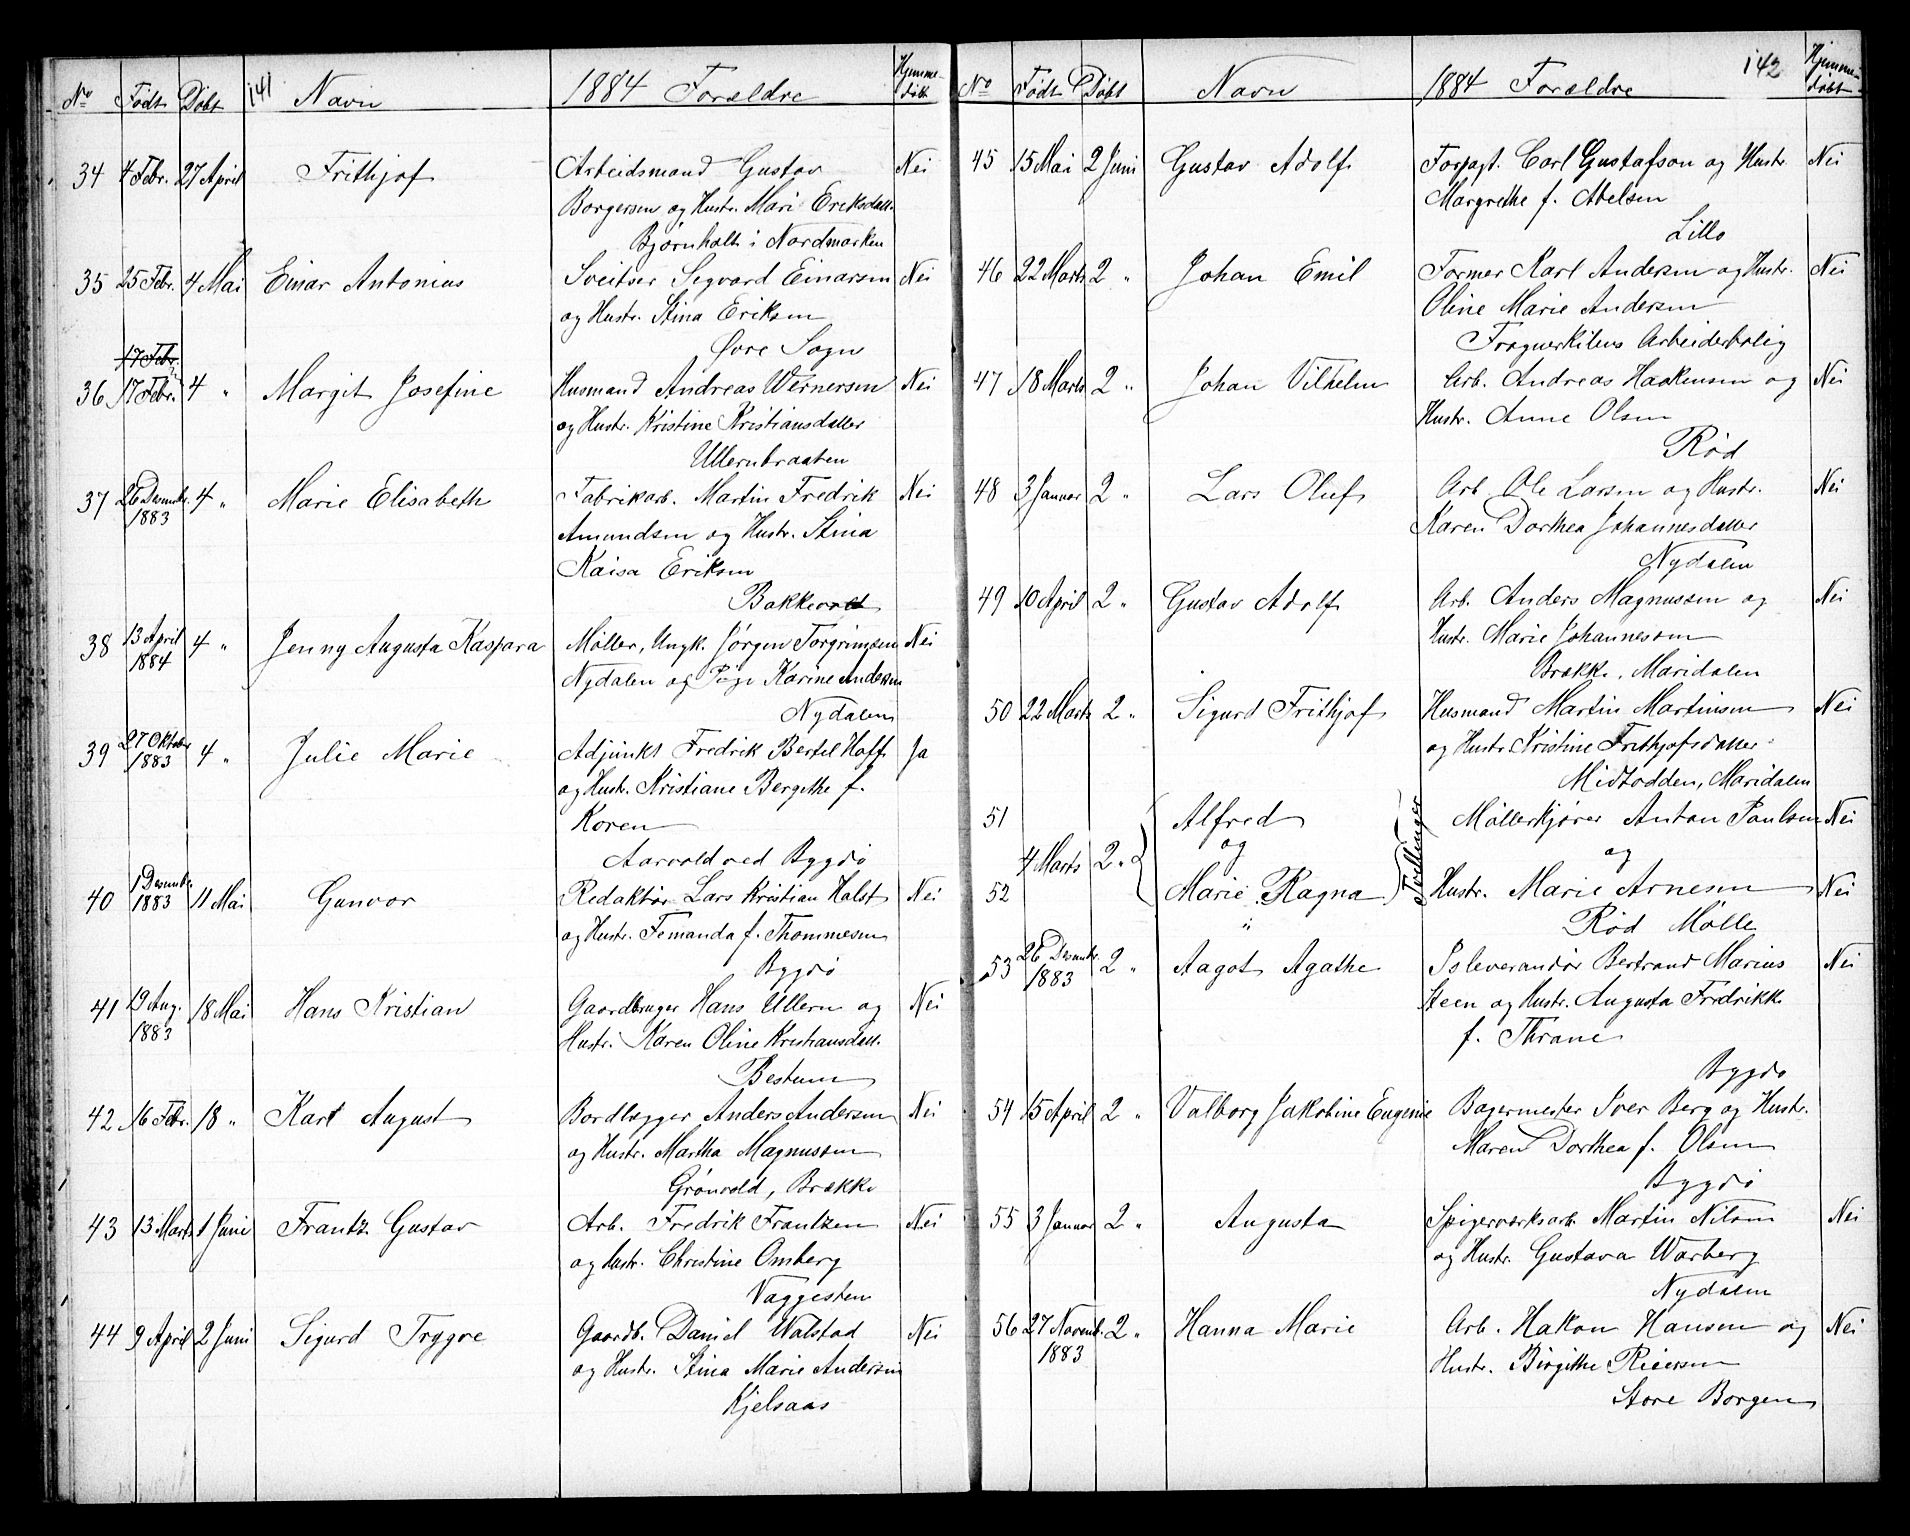 No Födt Döbt 141 Navn 1884 Forældre Hjemmedöbt
34 4 Febr. 27 April Frithjof Arbeidsmand Gustav Nei
Borgersen og Hustr. Mari Eriksdatt.
Bjørnholt i Nordmarken
35 25 Febr. 4 Mai Einar Antonius Sveitser Segvard Einarsen Nei
og Hustr. Stina Eriksen
Øvre Sogn
17 Febr.
36 17 Febr. 4 " Margit Josefine Husmand Andreas Wernersen Nei
og Hustr. Kristine Kristiansdatter
Ullernbraaten
37 26 Decembr. 1883 4 " Marie Elisabeth Fabrikarb. Martin Fredrik Nei
Amundsen og Hustr. Stina
Kaisa Eriksen
Bakkevolt
38 13 April 1884 4 " Jenny Augusta Kaspara Møller, Ungk. Jørgen Torgrimsen Nei
Nydalen og Pige Karine Andersen
Nydalen
39 27 Oktbr 1883 4 " Julie Marie Adjunkt Fredrik Bertel Hoff Ja
og Hustr. Kristiane Bergithe f.
Koren
Aarvold ved Bygdö
40 1 Decembr. 1883 11 Mai Gunvor Redaktör Lars Kristian Holst Nei
og Hustr. Fernanda f. Thommesen
Bygdö
41 19 Aug. 1883 18 Mai Hans Kristian Gaardbruger Hans Ullern og Nei
Hustr. Karen Oline Kristiansdatt.
Bestum
42 16 Febr. 18 " Karl August Bordlægger Anders Andersen Nei
og Hustr. Martha Magnussen
Grönvold, Brække
43 13 Marts 1 Juni Frantz Gustav Arb. Fredrik Frantzen Nei
og Hustr. Christine Omberg
Vaggesten
44 9 April 2 Juni Sigurd Tryggve Gaardb. Daniel Walstad Nei
og Hustr. Stina Marie Andersen
Kjelsaas
No Födt Döbt Navn 1884 Forældre 142 Hjemmedöbt
45 15 Mai 2 Juni Gustav Adolf Forpagt. Carl Gustafson og Hustr. Nei
Margrethe f. Abelsen
Lillo
46 22 Marts 2 " Johan Emil Former Karl Andersen og Hustr. Nei
Oline Marie Andersen
Frognerkilens Arbeiderbolig
47 18 Marts 2 " Johan Vilhelm Arb. Andreas Haakensen og Nei
Hustr. Anne Olsen
Röd
48 3 Januar 2 " Lars Oluf Arb. Ole Larsen og Hustr. Nei
Karen Dorthea Johannesdatter
Nydalen
49 10 April 2 " Gustav Adolf Arb. Anders Magnussen og Nei
Hustr. Marie Johannessen
Brække, Maridalen
50 22 Marts 2 " Sigurd Frithjof Husmand Martin Martinsen Nei
og Hustr. Kristine Frithjofsdatter
Midtodden, Maridalen
51 Alfred Møllerkjører Anton Paulsen Nei
4 Marts 2 " og Tvillinger og
52 Marie Ragna Hustr. Marie Arnesen Nei
" Röd Mölle
53 26 Decembr. 1883 2 " Aagot Agathe Isleverandör Bertrand Marius Nei
Steen og Hustr. Augusta Fredrikke
f. Thrane
Bygdö
54 15 April 2 " Valborg Jakobine Eugenie Bagermester Iver Berg og Hustr.
Maren Dorthea f. Olsen
Bygdö
55 3 Januar 2 " Augusta Spigerverksarb. Martin Nilsen Nei
og Hustr. Gustava Warberg
Nydalen
56 27 Novemb. 1883 2 " Hanna Marie Arb. Hakon Hansen og Nei
Hustr. Birgithe Reiersen
Store Borgen